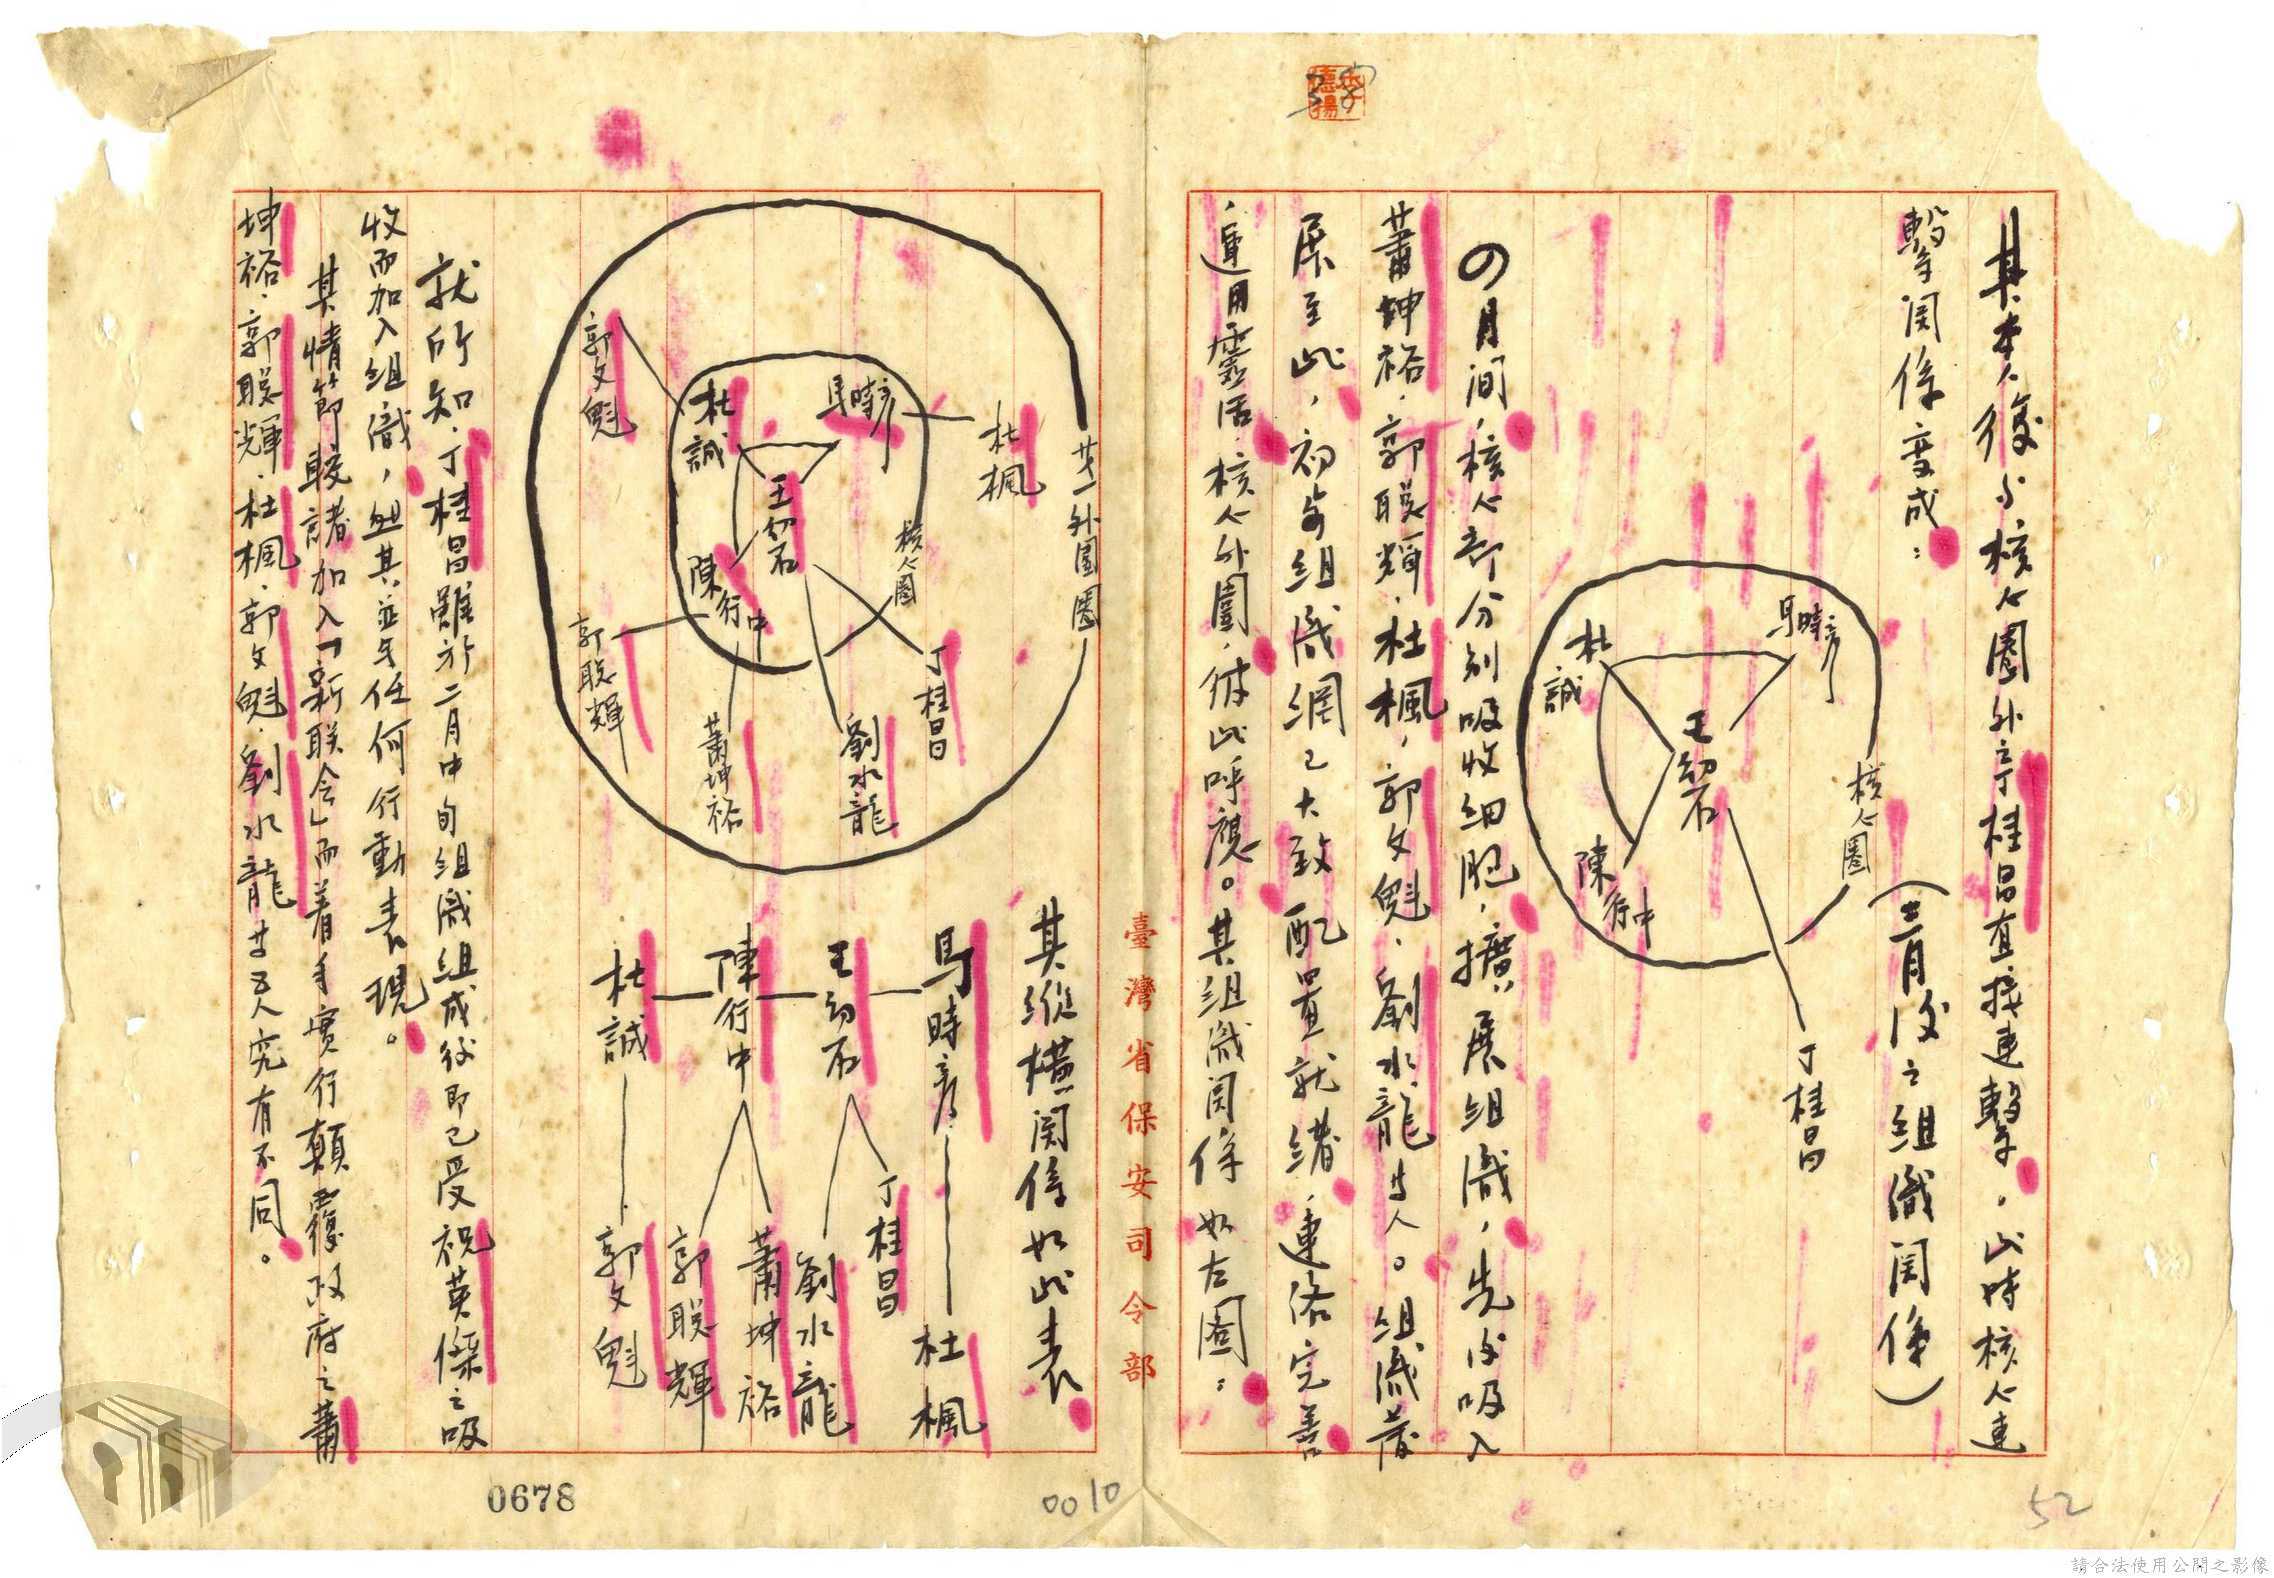 其本人後与核心圈外之丁桂昌直接連繫，此時核心連
繫関係変成：
馬時彥
杜誠
王幼石
陳行中
核心圈
丁桂昌
（三月後之組織関係）
の月间，核心部分分别吸收细胞，擴展组織，先後吸入
蕭坤裕．郭聡輝．杜楓，郭文魁．劉水龍等人。组織發
展至此，初步组織網已大致配置就绪，連络完善
，運用靈活．核心外圍，彼此呼應。其组織関係如左图：
臺灣省保安司令部
第一外圍圈
杜楓
馬時彥
杜誠
郭文魁
王幼石
核心圈
陳行中
郭聡輝
丁桂昌
劉水龍
蕭坤裕
其縱横関係如此表
馬時彥
王幼石
陳行中
杜誠
杜楓
丁桂昌
劉水龍
蕭坤裕
郭聡輝
郭文魁
就所知．丁桂昌雖於二月中旬组織组成後即已受祝英傑之吸
收而加入组織，但其並与任何行動表現。
其情節較諸加入「新联会」而着手實行顛覆政府之蕭
坤裕．郭聡輝．杜楓．郭文魁．劉水龍等五人究有不同。
0678
0010
52
請合法使用公開之影像